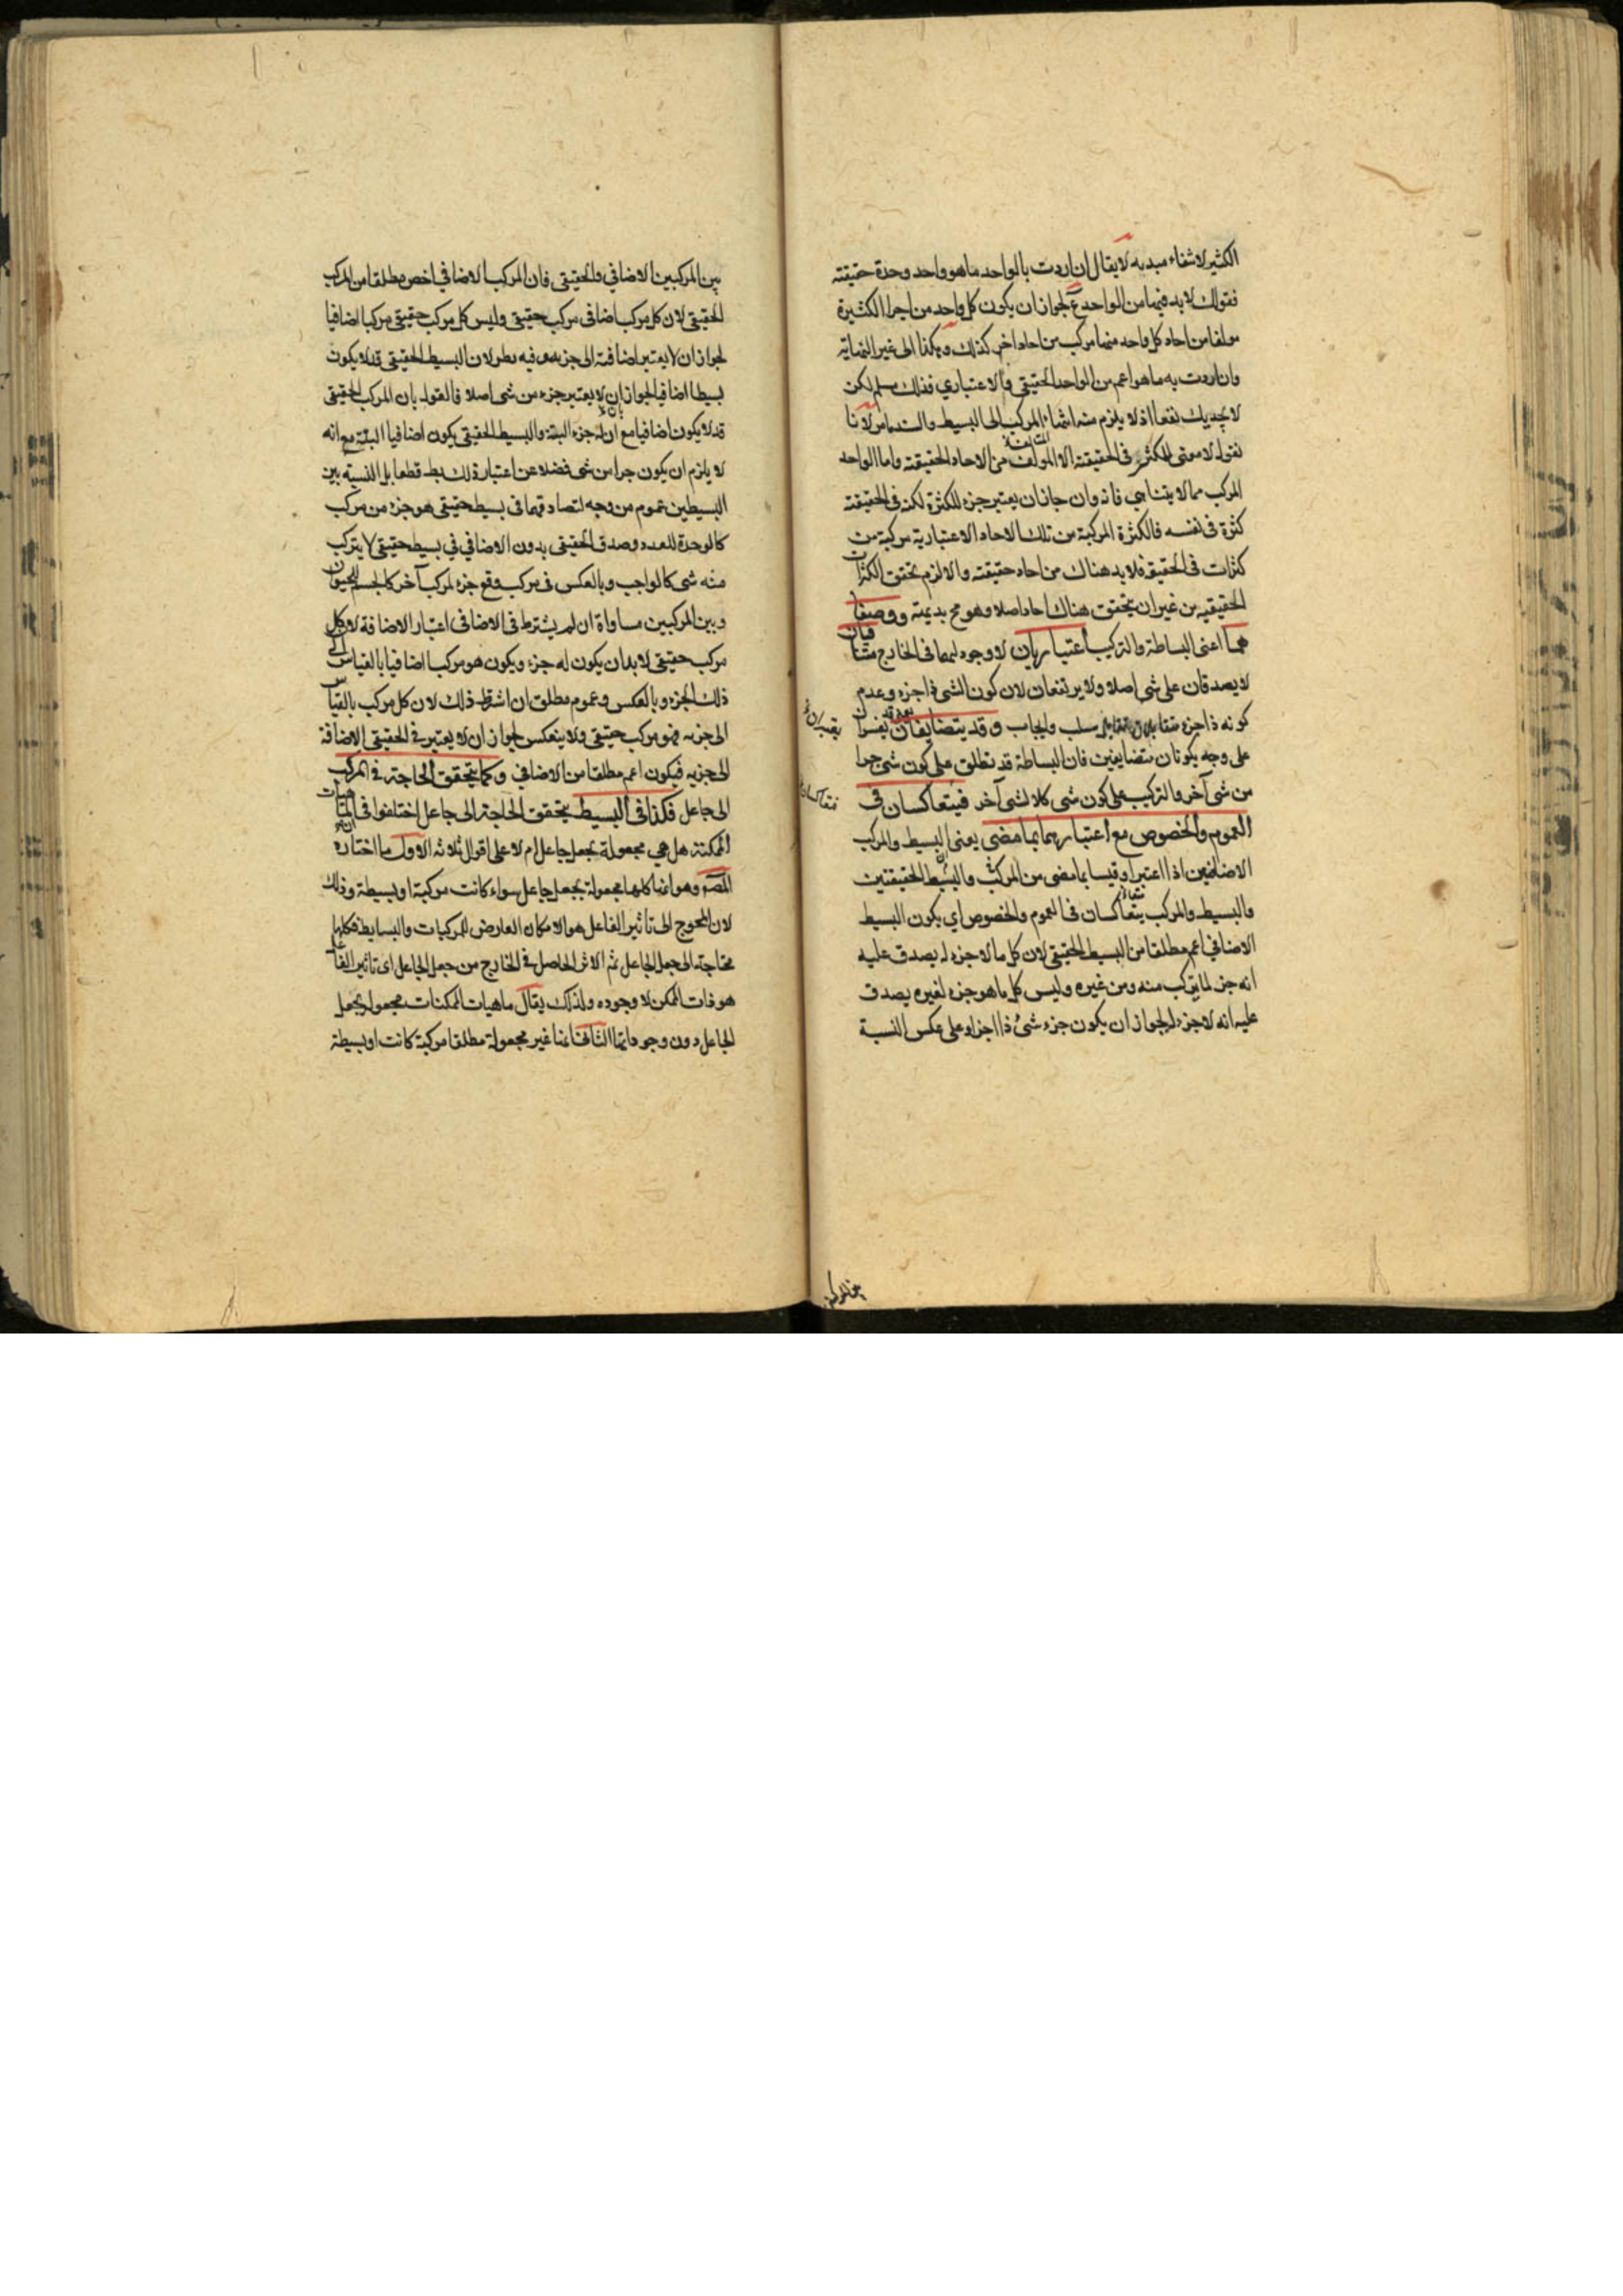 الكثير لانتفاء مبدئه لا يقال ان اردت بالواحد ما هو واحد وحدة حقيقته
فقولك لابد فيها من الواحد مم لجواز ان يكون كل واحد من اجزا الكثيرة
مولفا من احاد كل واحد منها مركب من احاد اخر كذلك وهكذا الى غير النهاية
وان اردت به ما هو اعم من الواحد الحقيقي والاعتباري فذلك مسلم لكن
لا يجديك نفعا اذ لا يلزم منه انتهاء المركب الى البسيط لانا
نقول لا معنى للكثرة في الحقيقة الا المولف من الاحاد الحقيقته واما الواحد
المركب مما لا يتناهى فانه وان جاز ان يعتبر جزء للكثرة لكنه في الحقيقته
كثرة في نفسه فالكثرة المركبة من تلك الاحاد الاعتبارية مركبة من
كثرات في الحقيقه فلا بد هناك من احاد حقيقته والا لزم تحقق الكثرات
الحقيقيه من غير ان يتحقق هناك احاد اصلا وهو مح بديهته ووصفا
هما اعنى البساطة والتركيب اعتباريان لا وجود لهما في الخارج متنافيان
لا يصدقان على شي اصلا ولا يرتفعان لان كون الشي ذا جزء وعدم
كونه ذا جزء متقابلان تقابل سلب وايجاب وقد يتضايفان
على وجه يكونان متضايفين فان البساطة قد تطلق على كون شي جزا
من شي آخر والتركيب على كون شي كلا لشي آخر فيتعاكسان في
العموم والخصوص مع اعتبارهما بما مضى يعنى البسيط والمركب
الاضافيين اذا اعتبرا وقيسا بما مضى من المركب والبسيط الحقيقتين
والبسيط والمركب يتعاكسان في العموم والخصوص اي يكون البسيط
الاضافي اعم مطلقا من البسيط الحقيقي لان كل ما لا جزء له يصدق عليه
انه جز لما يتركب منه ومن غيره وليس كل ما هو جزء لغيره يصدق
عليه انه لا جزء له لجواز ان يكون جزء شيُ ذا اجزاء على عكس النسبة
بين المركبين الاضافي والحقيقي فان المركب الاضافي اخص مطلقا من المركب
الحقيقي لان كل مركب اضافي مركب حقيقي وليس كل مركب حقيقي مركبا اضافيا
لجواز ان لا يعتبر اضافته الى جزءه وفيه نظر لان البسيط الحقيقي قد لا يكون
بسيطا اضافيا لجواز ان لا يعتبر جزء من شي اصلا فالقول بان المركب الحقيقي
قد لا يكون اضافيا مع ان له جزء البتة والبسيط الحقيقي يكون اضافيا البتة مع انه
لا يلزم ان يكون جزا من شي فضلا عن اعتبار ذلك بط قطعا بل النسبة بين
البسيطين عموم من وجه لتصادقهما في بسيط حقيقي هو جزء من مركب
كالوحدة للعدد وصدق الحقيقي بدون الاضافي في بسيط حقيقي لا يتركب
منه شي كالواجب وبالعكس في مركب وقع جزء لمركب آخر كالجسم للحيوان
وبين المركبين مساواة ان لم يشترط في الاضافي اعتبار الاضافة لان كل
مركب حقيقي لابد ان يكون له جزء ويكون هو مركبا اضافيا بالقياس الى
ذلك الجزء وبالعكس وعموم مطلق ان اشترط ذلك لان كل مركب بالقياس
الى جزءه فهو مركب حقيقي ولا ينعكس لجواز ان لا يعتبر في الحقيقي الاضافة
الى جزيه فيكون اعم مطلقا من الاضافي وكما يتحقق الحاجة في المركب
الى جاعل فكذا في البسيط يتحقق الحاجة الى جاعل اختلفوا في الماهيات
الممكنة هل هي مجعولة بجعل جاعل ام لا على اقوال ثلاثه الاول ما اختاره
المصه وهو انها كلها مجعولة بجعل جاعل سواء كانت مركبة او بسيطة وذلك
لان المحوج الى تاثير الفاعل هو الامكان العارض للمركبات والبسايط فكلها
محتاجة الى جعل الجاعل ثم الاثر الحاصل في الخارج من جعل الجاعل اى تاثير الفاعل
هو ذات الممكن لا وجوده ولذلك يقال ماهيات الممكنات مجعولة بجعل
الجاعل دون وجوداتها الثاني انها غير مجعولة مطلقا مركبة كانت او بسيطة
بين المركبين